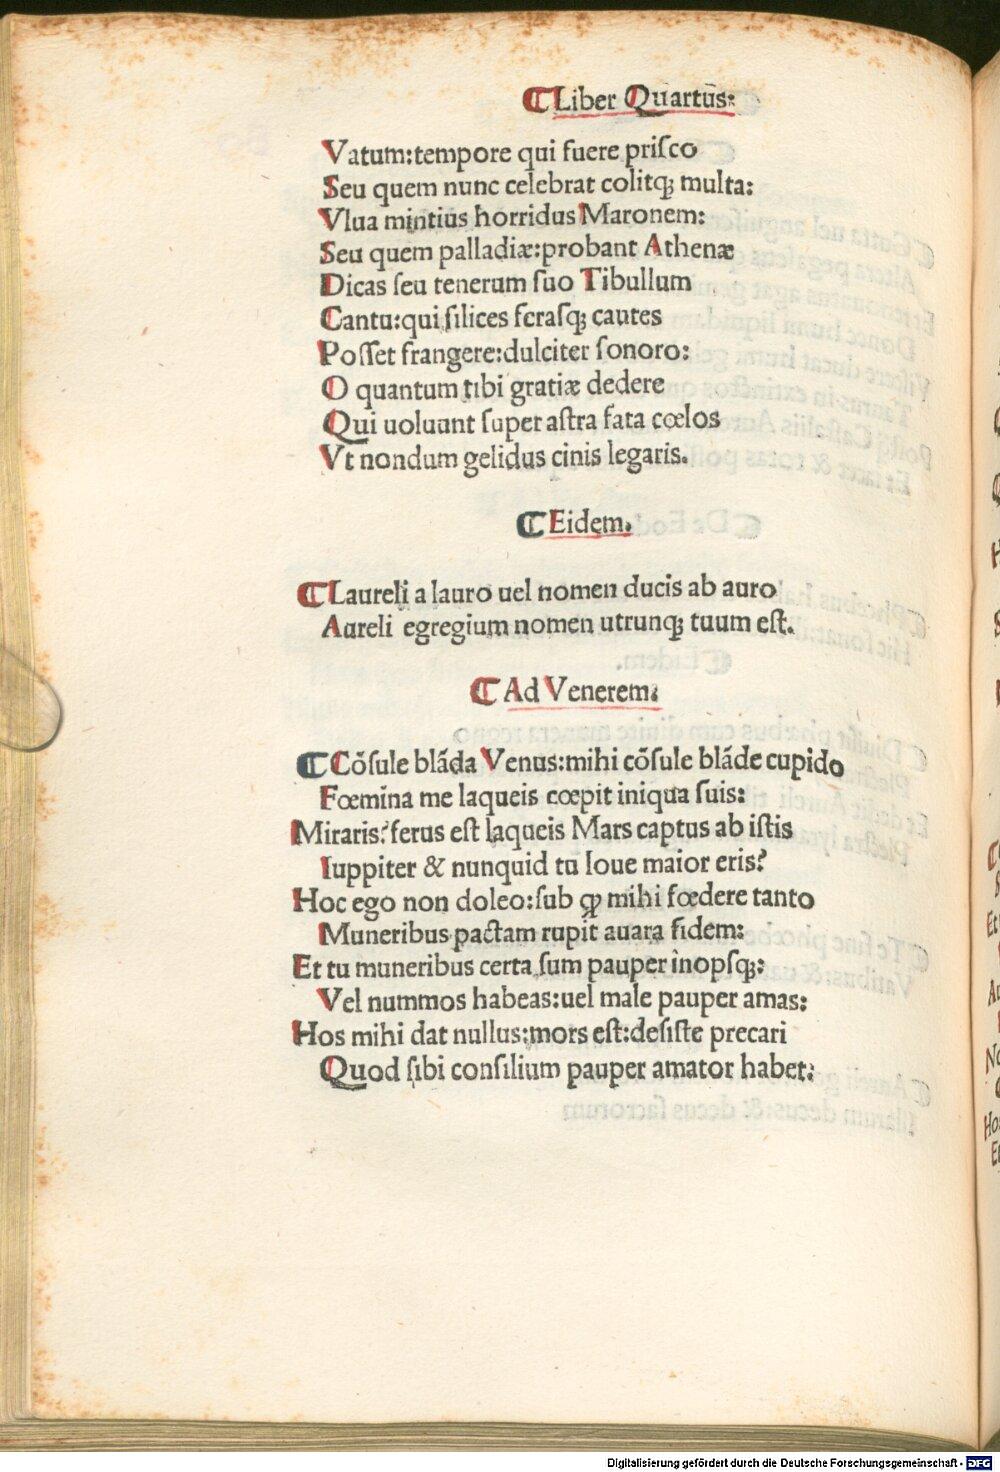 Liber Quartus:
Vatum:tempore qui fuere priſco
Seu quem nunc celebrat colitqꝫ multa:
Vlua mintius horridus Maronem:
Seu quem palladiæ:probant Athenæ
Dicas ſeu tenerum ſuo Tibullum
Cantu:qui ſilices feraſqꝫ cautes
Poſſet frangere:dulciter ſonoro:
O quantum tibi gratiæ dedere
Qui uoluunt ſuper aſtra fata cœlos
Vt nondum gelidus cinis legaris.
Eidem.
Laureli a lauro uel nomen ducis ab auro
Aureli egregium nomen utrunqꝫ tuum eſt.
Ad Venerem:
Cõſule blãda Venus:mihi cõſule blãde cupido
Fœmina me laqueis cœpit iniqua ſuis:
Miraris? ferus eſt laqueis Mars captus ab iſtis
Iuppiter & nunquid tu Ioue maior eris?
Hoc ego non doleo:ſub ꝙ mihi fœdere tanto
Muneribus pactam rupit auara fidem:
Et tu muneribus certa ſum pauper inopſqꝫ:
Vel nummos habeas:uel male pauper amas:
Hos mihi dat nullus:mors eſt:deſiſte precari
Quod ſibi conſilium pauper amator habet:
Digitalisierung gefördert durch die Deutsche Forschungsgemeinschaft - DFG